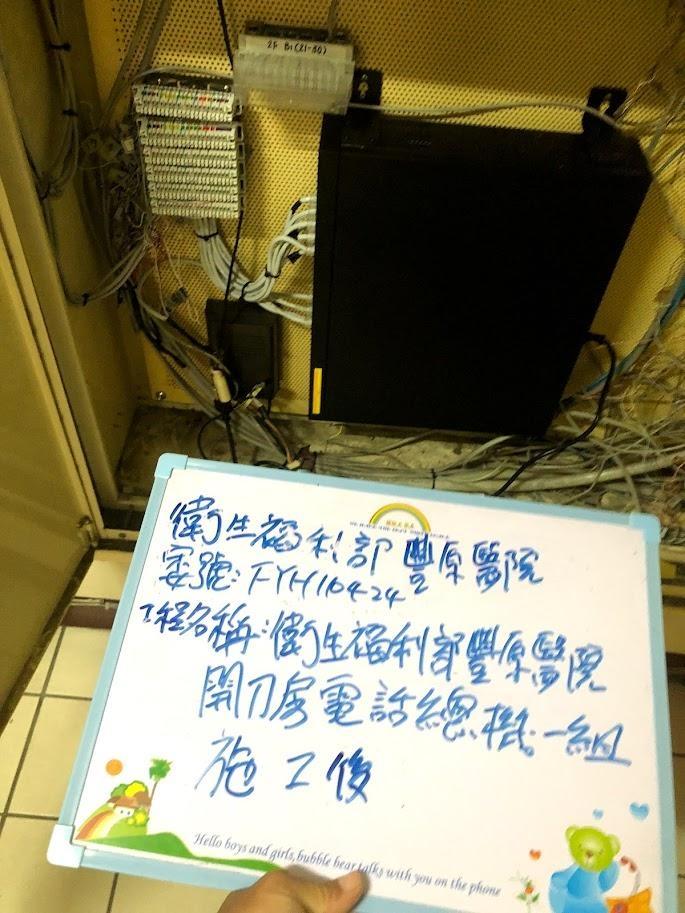 2F B1(21-30)
衛生福利部豐原醫院
案號:FYH10424
工程名稱:衛生福利部豐原醫院
開刀房電話總機一組
施工後
Hello boys and girls, bubble bear talks with you on the phone